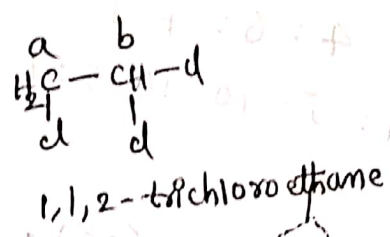 a b
H₂C — CH — Cl
Cl Cl
1,1,2-trichloro ethane